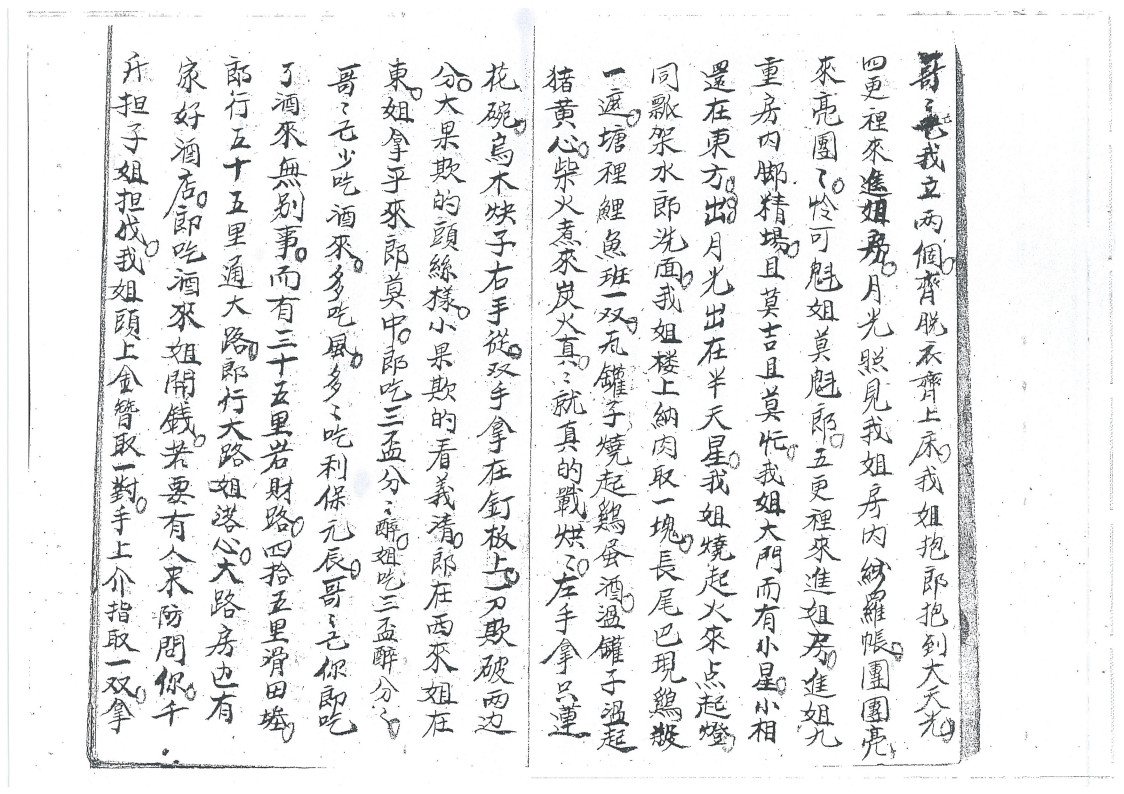 哥〻我立两個。齊脱衣齊上床。我姐抱郎抱到大天光。
四更裡來進姐房。月光照見我姐房内紗羅帳。團團亮
來亮團〻。怜可魁姐莫魁郎。五更裡來進姐房。進姐九
重房内脚精場。且莫吉且莫忙。我姐大門而有小星。小相
還在東方。出月光出在半天星。我姐燒起火來点起燈。
同瓢架水郎洗面。我姐楼上納肉取一塊。長尾巴現鷄殺
一遮。塘裡鯉魚班一双。瓦罐子燒起鷄蛋酒。温罐子温起
猪黄心。柴火煮來炭火真。〻就真的戰烘〻。左手拿只蓮
花碗。烏木快子右手從。双手拿在釘板上。一刀欺破两边
分。大果欺的頭絲樣。小果欺的看義清。郎在西來姐在
東。姐拿乎來郎莫中。郎吃三盃分〻醉。姐吃三盃醉分〻。
哥〻元少吃酒來。多吃風。多〻吃利保元辰。哥〻元你郎吃
了酒來無别事。而有三十五里岩財路。四拾五里滑田塍。
郎行五十五里通大路。郎行大路姐港心。大路房边有
家好酒店。郎吃酒來姐開銭。若要有人來防問你。千
斤担子姐担我。我姐頭上金簪取一對。手上介指取一双。拿